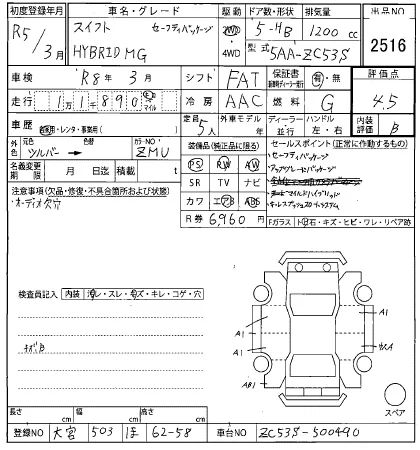 初度登録年月 車名・グレード 駆動 ドア数・形状 排気量 出品NO
R5/3月 スイフト セーフティパッケージ 2WD 5-HB 1200 cc 2516
HYBRID MG 4WD 型式 5AA-ZC53S
車検 R8年 3月 シフト FAT 保証書 有・無 評価点
走行 11,890 マイル 冷房 AAC 燃料 G 4.5
車歴 自家用・レンタ・事業用( ) 定員 5人 外車モデル 年 ディーラー 並行 ハンドル 左・右 内装評価 B
外色 元色 シルバー → 色 カラーNO ZMU 装備品(純正品に限る) セールスポイント(正常に作動するもの)
名義変更期限 月 日迄 積載 t PS PW AW セーフティパッケージ
注意事項(欠品・修復・不具合箇所および状態) SR TV ナビ アップグレードパッケージ
オーディオ欠穴 カワ エアB ABS
R券 6,960 円 キーレスプッシュスタートシステム
Fガラス 飛石・キズ・ヒビ・ワレ・リペア跡
検査員記入 内装 汚レ・スレ・キズ・キレ・コゲ・穴
A1 A1
キズB A1
AB1
スペア
長さ cm 幅 cm 高さ cm
登録NO 大宮 503 ほ 62-58 車台NO ZC53S-500490